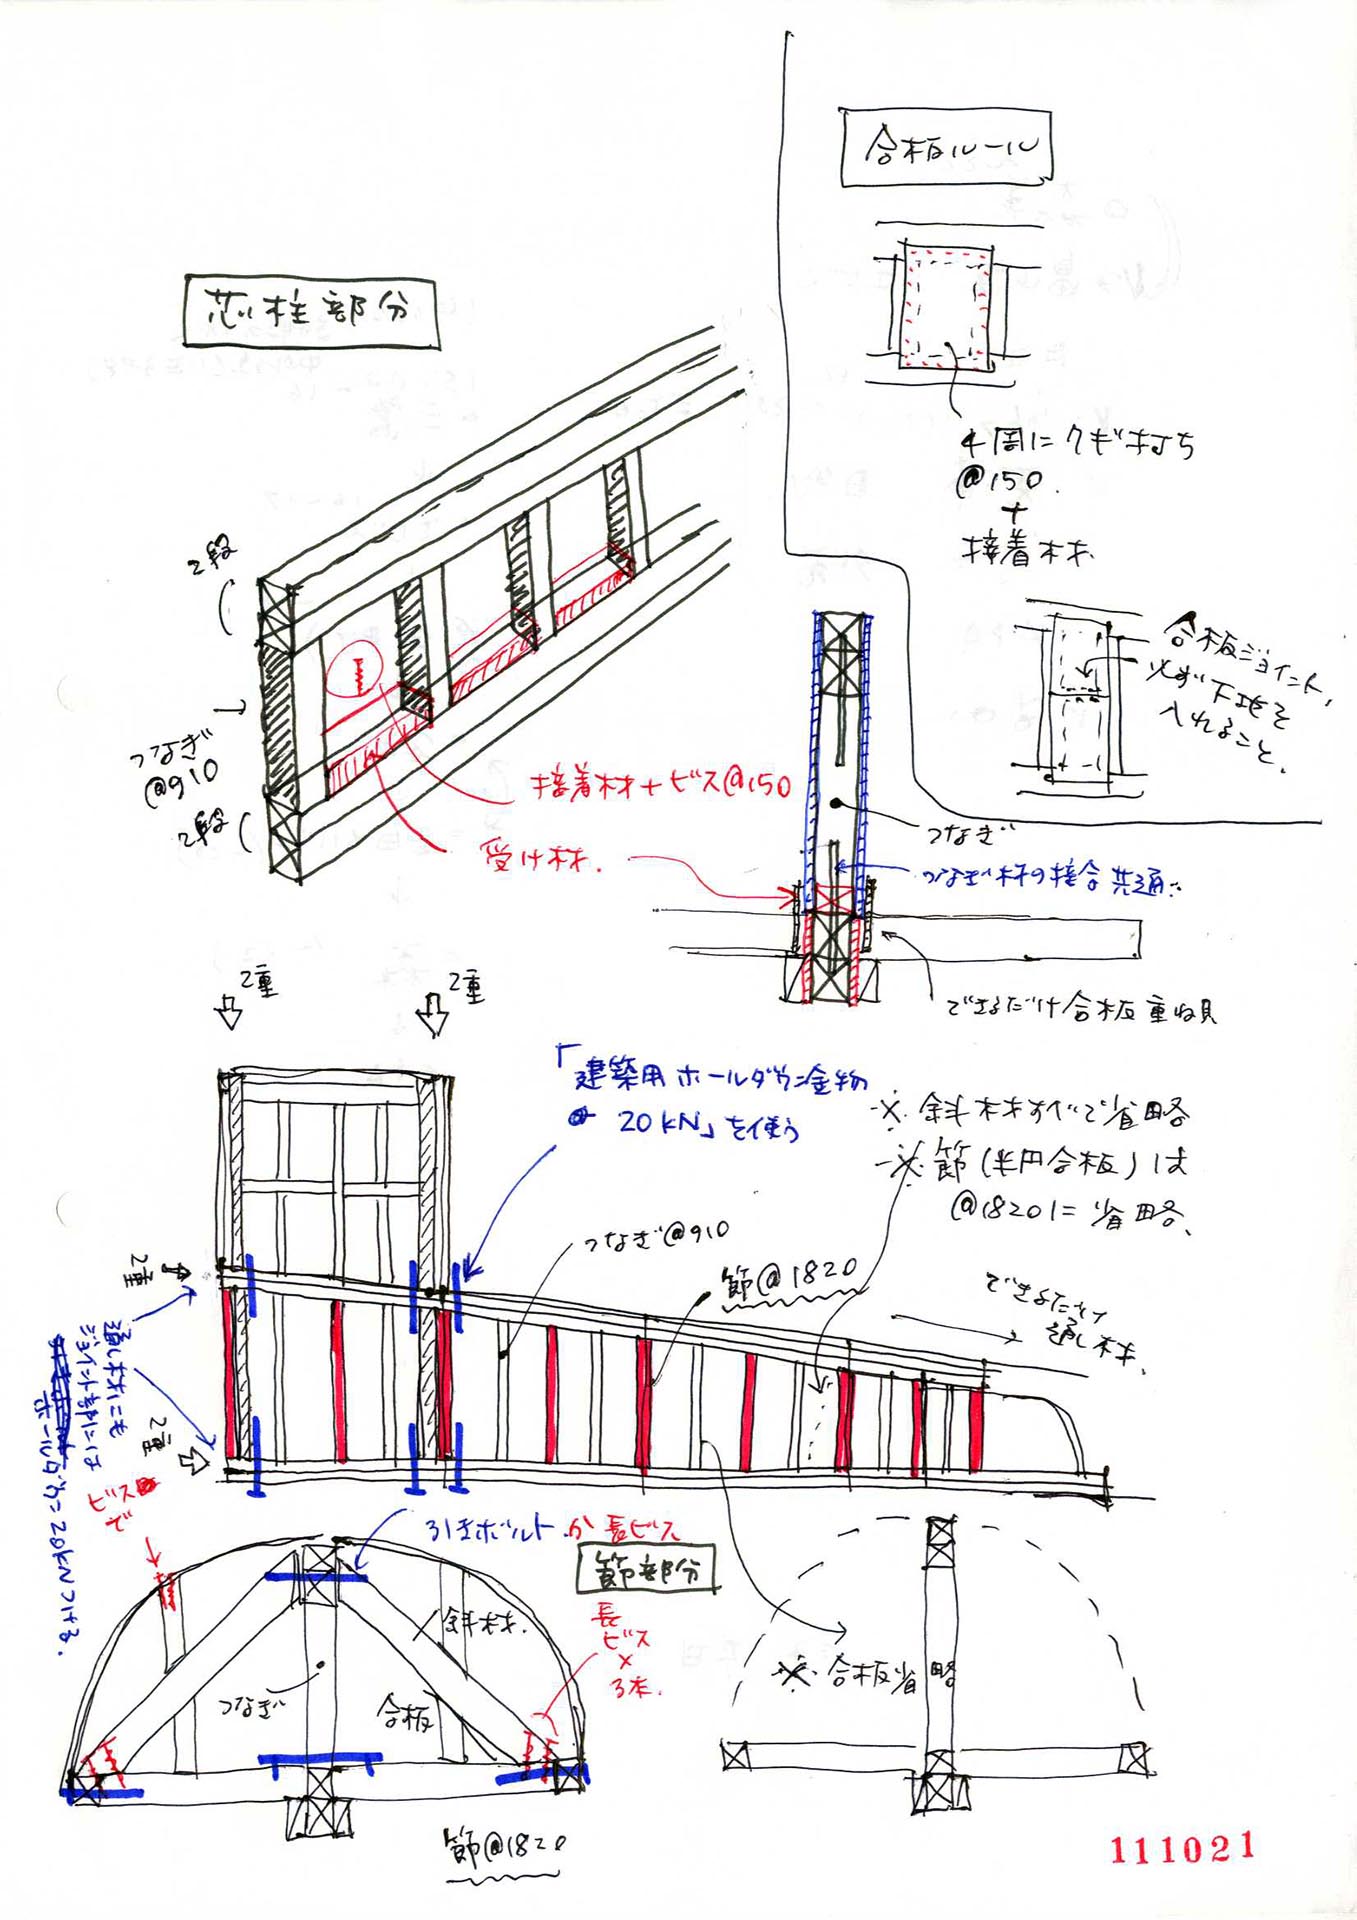 合板ルール
4周にクギ打ち
@150.
+
接着材
合板ジョイント,
必ず下地を
入れること.
芯柱部分
2段
つなぎ
@910
2段
接着材+ビス@150
受け材.
つなぎ
つなぎ材の接合共通.
できるだけ合板重ね貝
2重
2重
「建築用ホールダウン金物
20kN」を使う
※ 斜材すべて省略
※ 節(半円合板)は
@1820に省略.
つなぎ@910
節@1820
できるだけ
通し材.
2重
2重
通し材にも
ジョイント部には
ホールダウン20kNつける.
ビス
で
引きボルトか長ビス
節部分
長
ビス
×
3本.
斜材.
つなぎ
合板
節@1820
※ 合板省略
111021